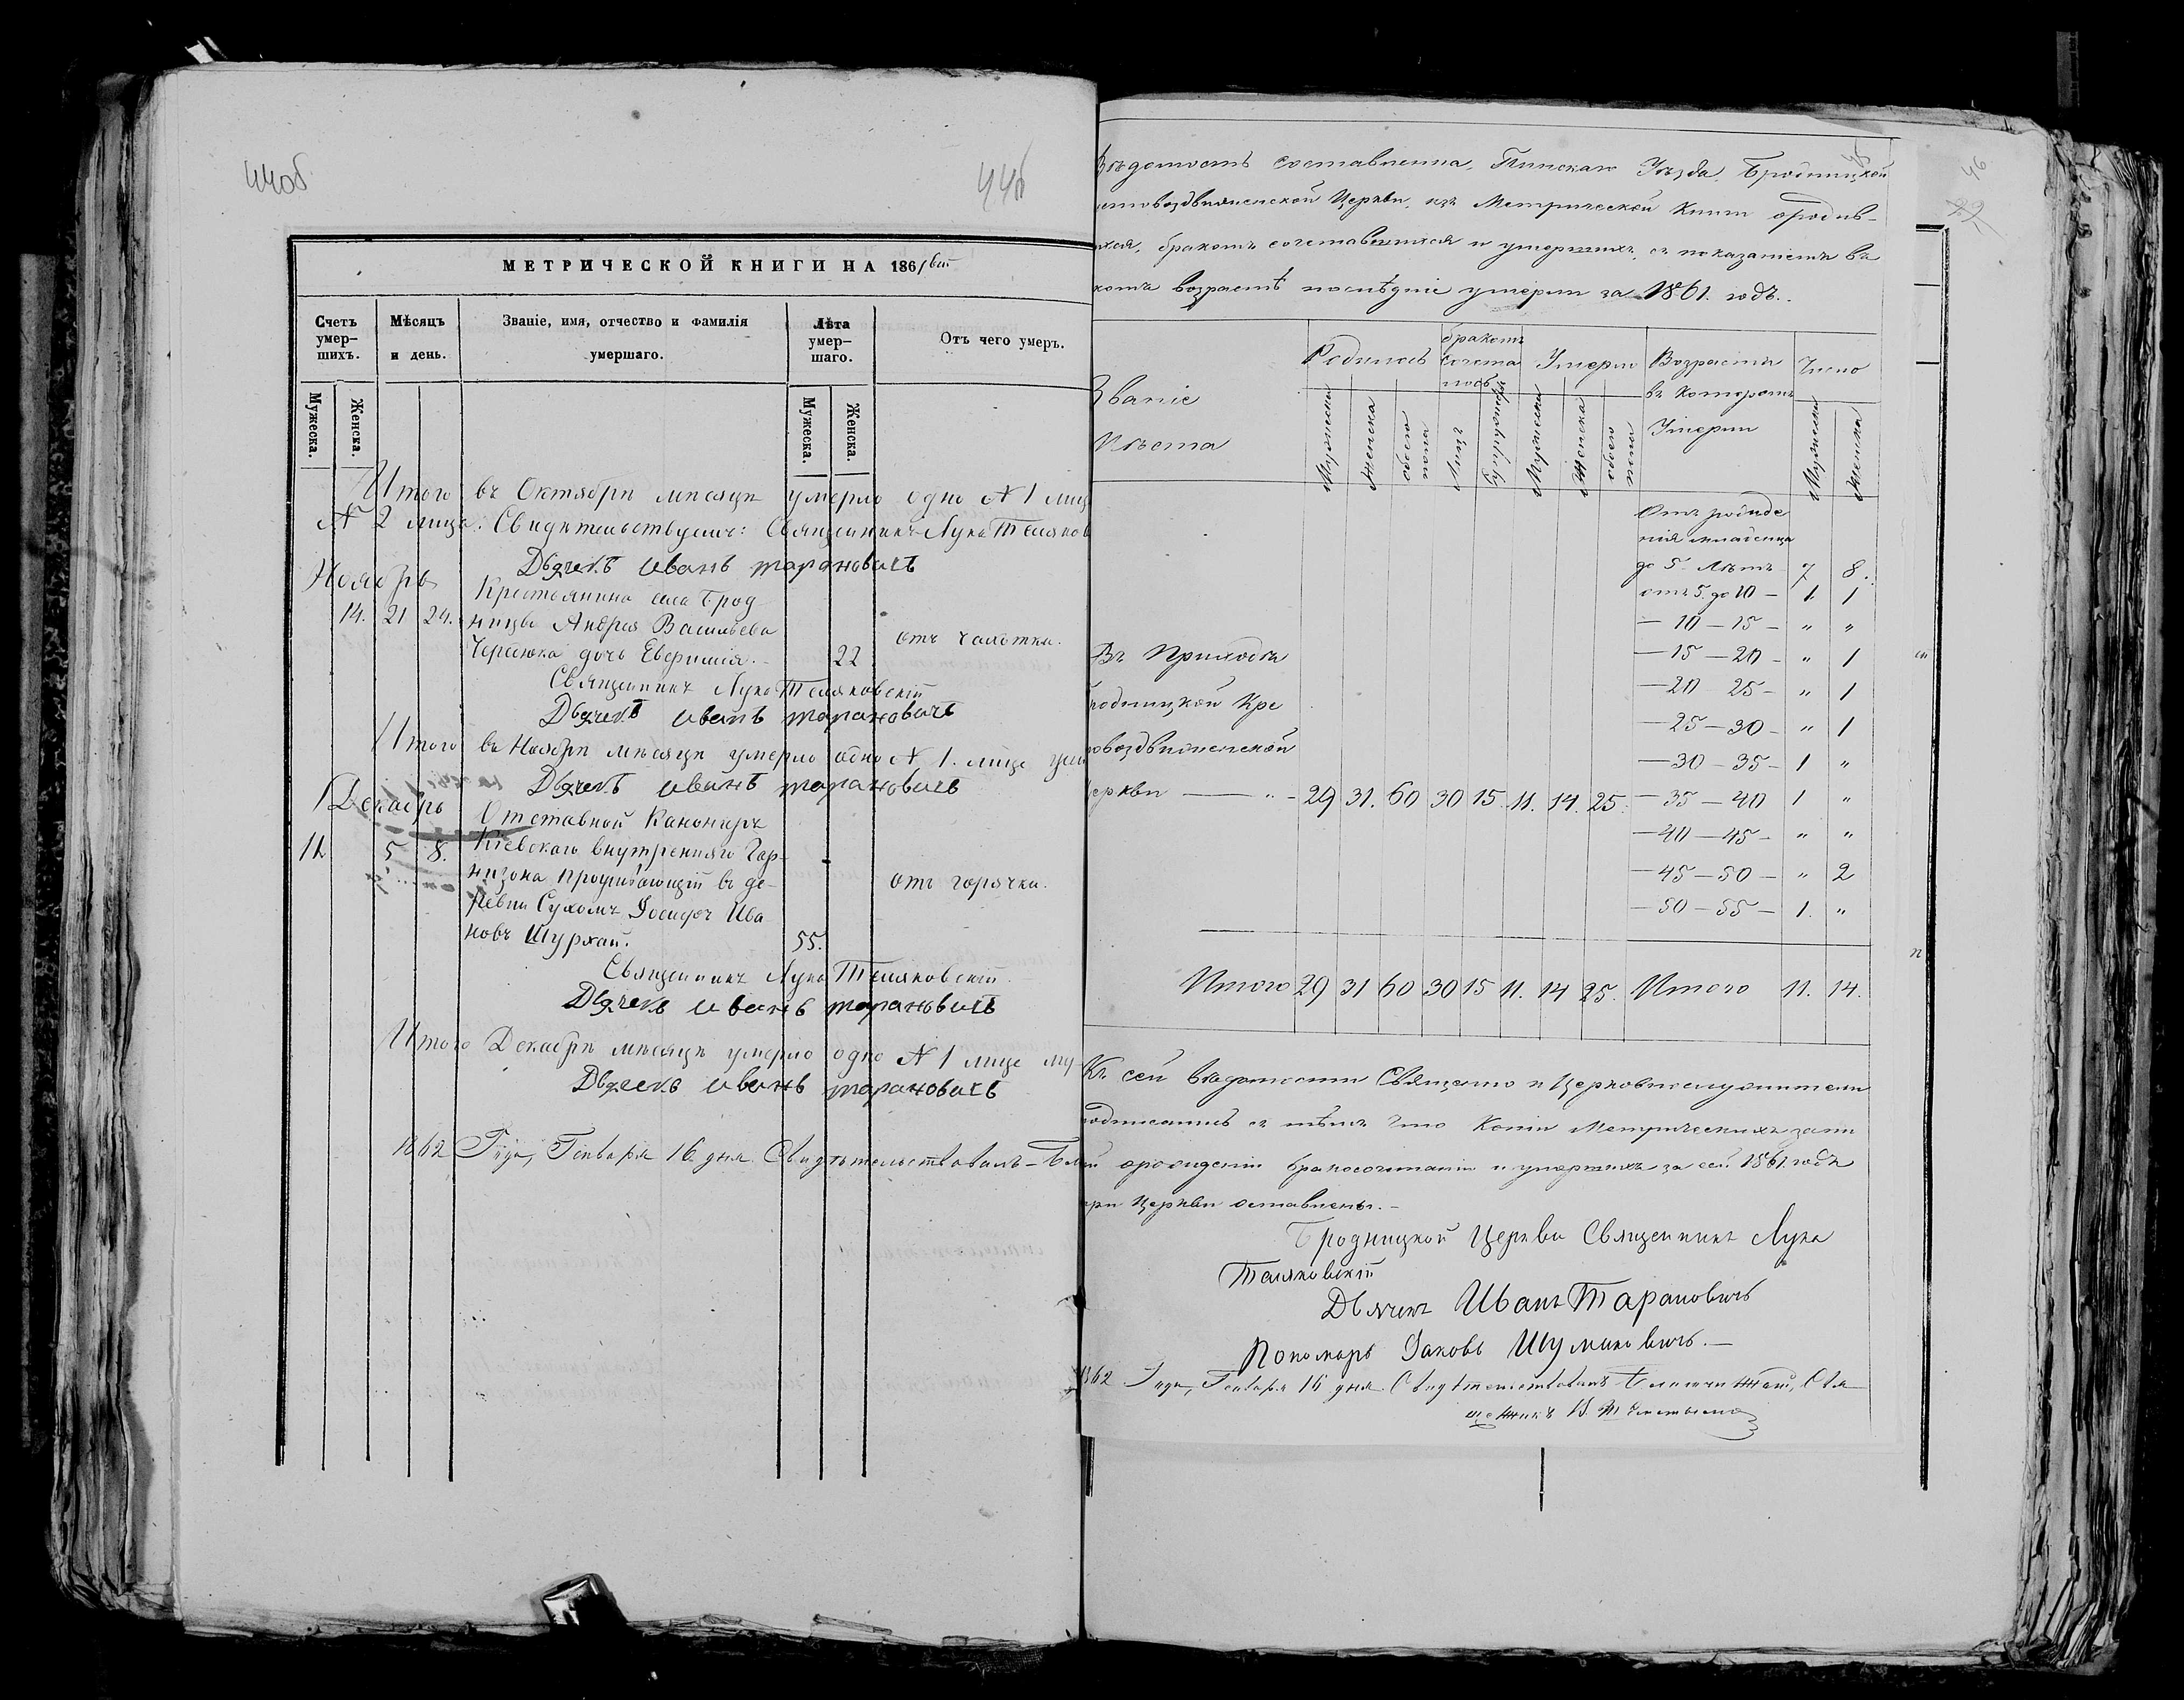 44об
44б
МЕТРИЧЕСКОЙ КНИГИ НА 1861вый
Счетъ умер-шихъ.
Мѣсяцъ и день.
Званіе, имя, отчество и фамилія умершаго.
Лѣта умер-шаго.
Отъ чего умеръ.
Мужеска.
Женска.
Мужеска.
Женска.
Итого въ Октябрѣ мѣсяцѣ умерло одно № 1 лиц
№ 2 лица. Свидѣтельствуемъ: Священникъ Лука Теляков
Дьячекъ Иванъ Тарановичъ
Ноябрь
Крестьянина села Брод
14. 21 24. ницы Андрея Васильева
отъ чахотки.
дочь Евфимія. 22
Священникъ Лука Теляковскій
Дьячекъ Иванъ Тарановичъ
Итого въ Ноябрѣ мѣсяцѣ умерло одно № 1. лице
Дьячекъ Иванъ Тарановичъ
Декабрь
Отставной Канониръ
11 5 8. Кіевскаго внутренняго Гар-
низона проживающій въ де-
отъ горячки.
ревни Сухомъ Іосифъ Ива
новъ Шурхай. 55.
Священникъ Лука Теляковскій.
Дьячекъ Иванъ Тарановичъ
Итого Декабрѣ мѣсяцѣ умерло одно № 1 лице му
Дьячекъ Иванъ Тарановичъ
1862 Года, Генваря 16 дня Свидѣтельствовалъ - Бла
46
29
Вѣдомость составленна, Пинскаго Уѣзда Бродницкой
стовоздвиженской Церкви, изъ Метрической Книги о родив-
хся, бракомъ сочетавшихся и умершихъ, съ показаніемъ въ
комъ возрастѣ послѣдніе умерли за 1861. годъ.
Званіе
Мѣста
Родилось
бракомъ сочета лось
Умерло
Возрастъ въ которомъ Умерли
Число
Мужеска
Женска
обоего пола
Лицъ
Мужеска
Женска
обоего пола
Мужеска
Женска
Отъ рожде
нія младенца
до 5. Лѣтъ 7 8.
отъ 5. до 10 — 1. 1
— 10 — 15 — „ „
— 15 — 20 — „ 1
— 20 — 25 — „ 1
— 25 — 30 — „ 1
— 30 — 35 — 1 „
— 35 — 40 1 „
— 40 — 45 — „ „
— 45 — 50 — „ 2
— 50 — 55 — 1. „
Въ Приходѣ
родницкой Кре
овоздвиженской
еркви — 29 31. 60 30 15. 11. 14. 25.
Итого 29 31 60 30 15 11. 14 25. Итого 11. 14.
Къ сей вѣдомости Священно и Церковнослужители
одписались съ тѣмъ что Копіи Метрическихъ запи
ей о рожденіи бракосочетаніи и умершихъ за сей 1861. годъ
при Церкви оставлены. -
Бродницкой Церкви Священникъ Лука
Теляковскій
Дьячекъ Иванъ Тарановичъ
Пономарь Іаковъ Шумиковичъ. —
1862 Года, Генваря 16 дня. Свидѣтельствовалъ Благочинный, Свя
щенникъ